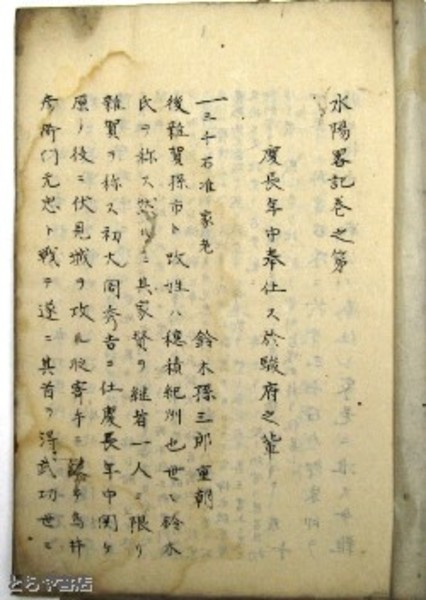 水陽畧記巻之第
慶長年中奉仕ス於駿府之輩
一三千石准家老 鈴木孫三郎重朝
後雜賀孫市ト改姓ハ穂積紀州也世々鈴木
氏ヲ称ス然ルニ其家督ヲ継者一人ニ限リ
雜賀ヲ称ス初大閤秀吉ニ仕慶長年中関ケ
原ノ役ニ伏見城ヲ攻ル
彦衛門元忠ト戦テ遂ニ其首ヲ得武功世ニ
とらや書店